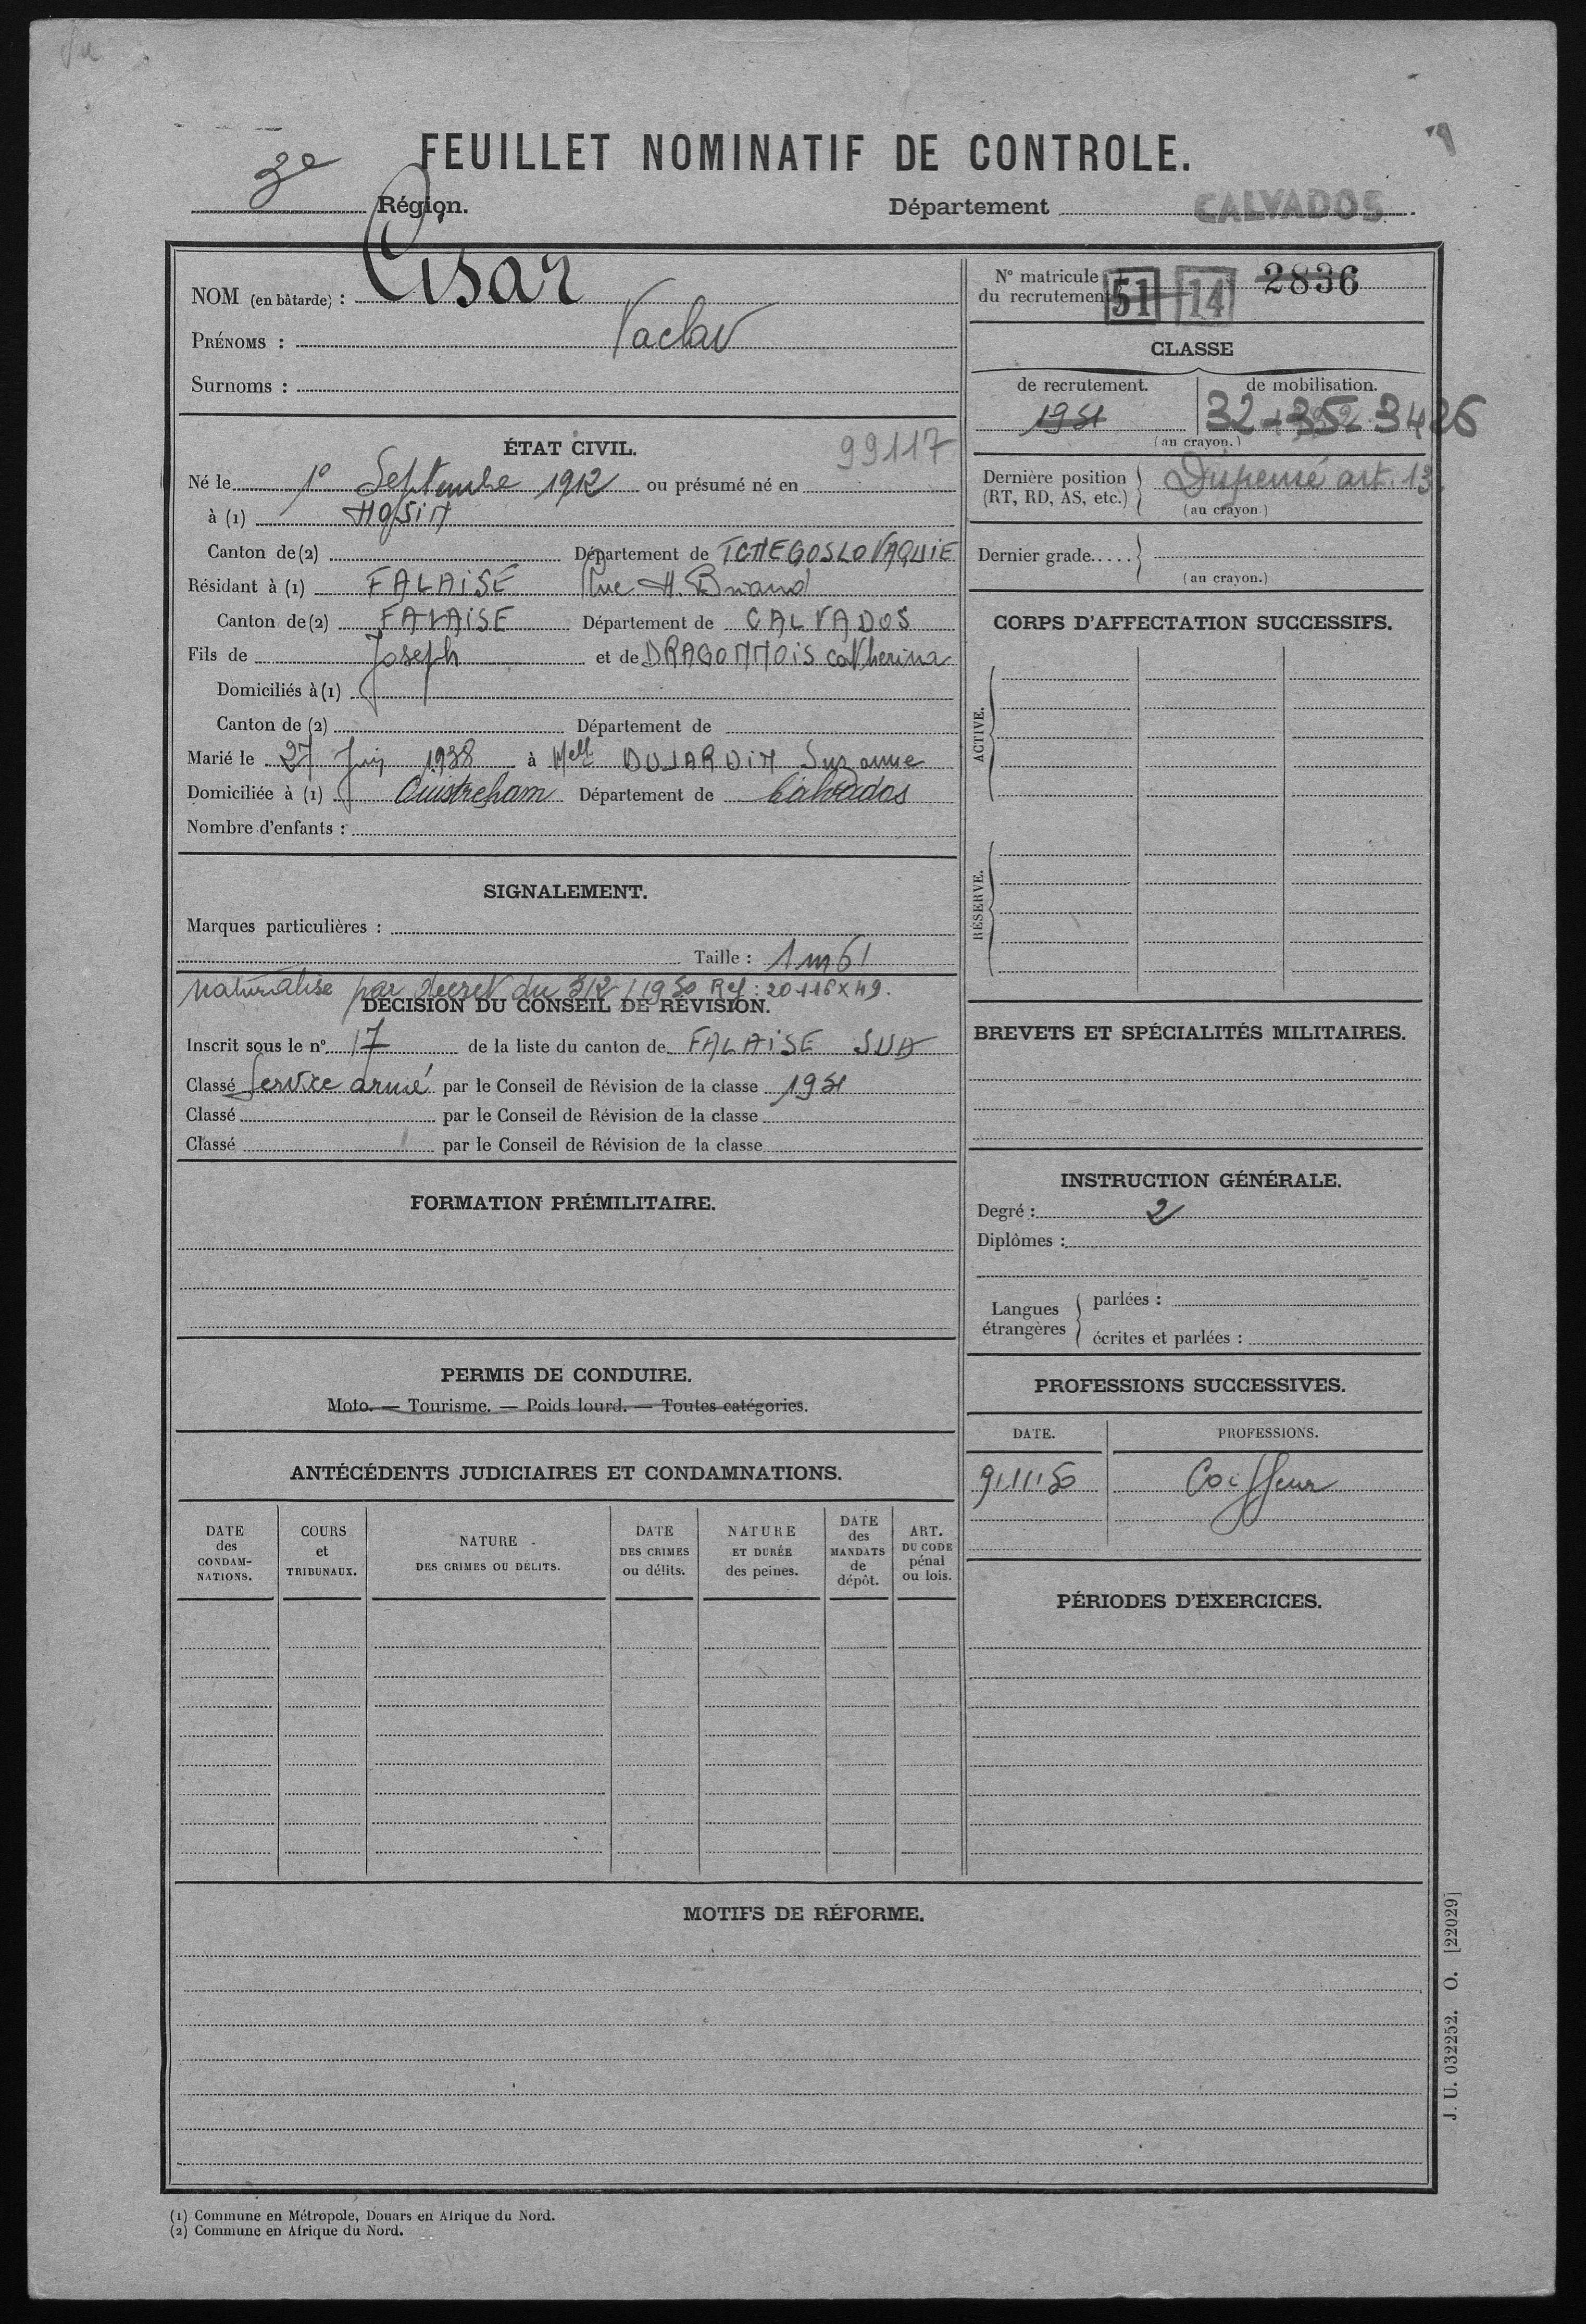 FEUILLET NOMINATIF DE CONTROLE.
3e Région.
Département CALVADOS
NOM (en bâtarde) : Cisar
PRÉNOMS : Vaclav
Surnoms :
ÉTAT CIVIL.
99117
Né le 1° Septembre 1912 ou présumé né en
à (1)
Canton de (2) Département de TCHEGOSLOVAQUIE
Résidant à (1) FALAISE Rue A. Briand
Canton de (2) FALAISE Département de CALVADOS
Fils de Joseph et de Catherina
Domiciliés à (1)
Canton de (2) Département de
Marié le 27 Juin 1938 à Melle DUJARDIN Suzanne
Domiciliée à (1) Ouistreham Département de Calvados
Nombre d'enfants :
SIGNALEMENT.
Marques particulières :
Taille : 1m61
naturalisé par décret du 1950 Ref : 20116x49.
DÉCISION DU CONSEIL DE RÉVISION.
Inscrit sous le n° 17 de la liste du canton de FALAISE SUD
Classé Service armé par le Conseil de Révision de la classe 1951
Classé par le Conseil de Révision de la classe
Classé par le Conseil de Révision de la classe
FORMATION PRÉMILITAIRE.
PERMIS DE CONDUIRE.
Moto. — Tourisme. — Poids lourd. — Toutes catégories.
ANTÉCÉDENTS JUDICIAIRES ET CONDAMNATIONS.
DATE des CONDAM-NATIONS.
COURS et TRIBUNAUX.
NATURE DES CRIMES OU DÉLITS.
DATE DES CRIMES ou délits.
NATURE ET DURÉE des peines.
DATE des MANDATS de dépôt.
ART. DU CODE pénal ou lois.
N° matricule du recrutement 51 14 2836
CLASSE
de recrutement. de mobilisation.
1951 32
(au crayon.)
Dernière position (RT, RD, AS, etc.) Dispensé art. 13
(au crayon.)
Dernier grade.....
(au crayon.)
CORPS D'AFFECTATION SUCCESSIFS.
ACTIVE.
RÉSERVE.
BREVETS ET SPÉCIALITÉS MILITAIRES.
INSTRUCTION GÉNÉRALE.
Degré : 2
Diplômes :
Langues étrangères
parlées :
écrites et parlées :
PROFESSIONS SUCCESSIVES.
DATE. PROFESSIONS.
9.11.50 Coiffeur
PÉRIODES D'EXERCICES.
MOTIFS DE RÉFORME.
J. U. 032252. O. [22029]
(1) Commune en Métropole, Douars en Afrique du Nord.
(2) Commune en Afrique du Nord.